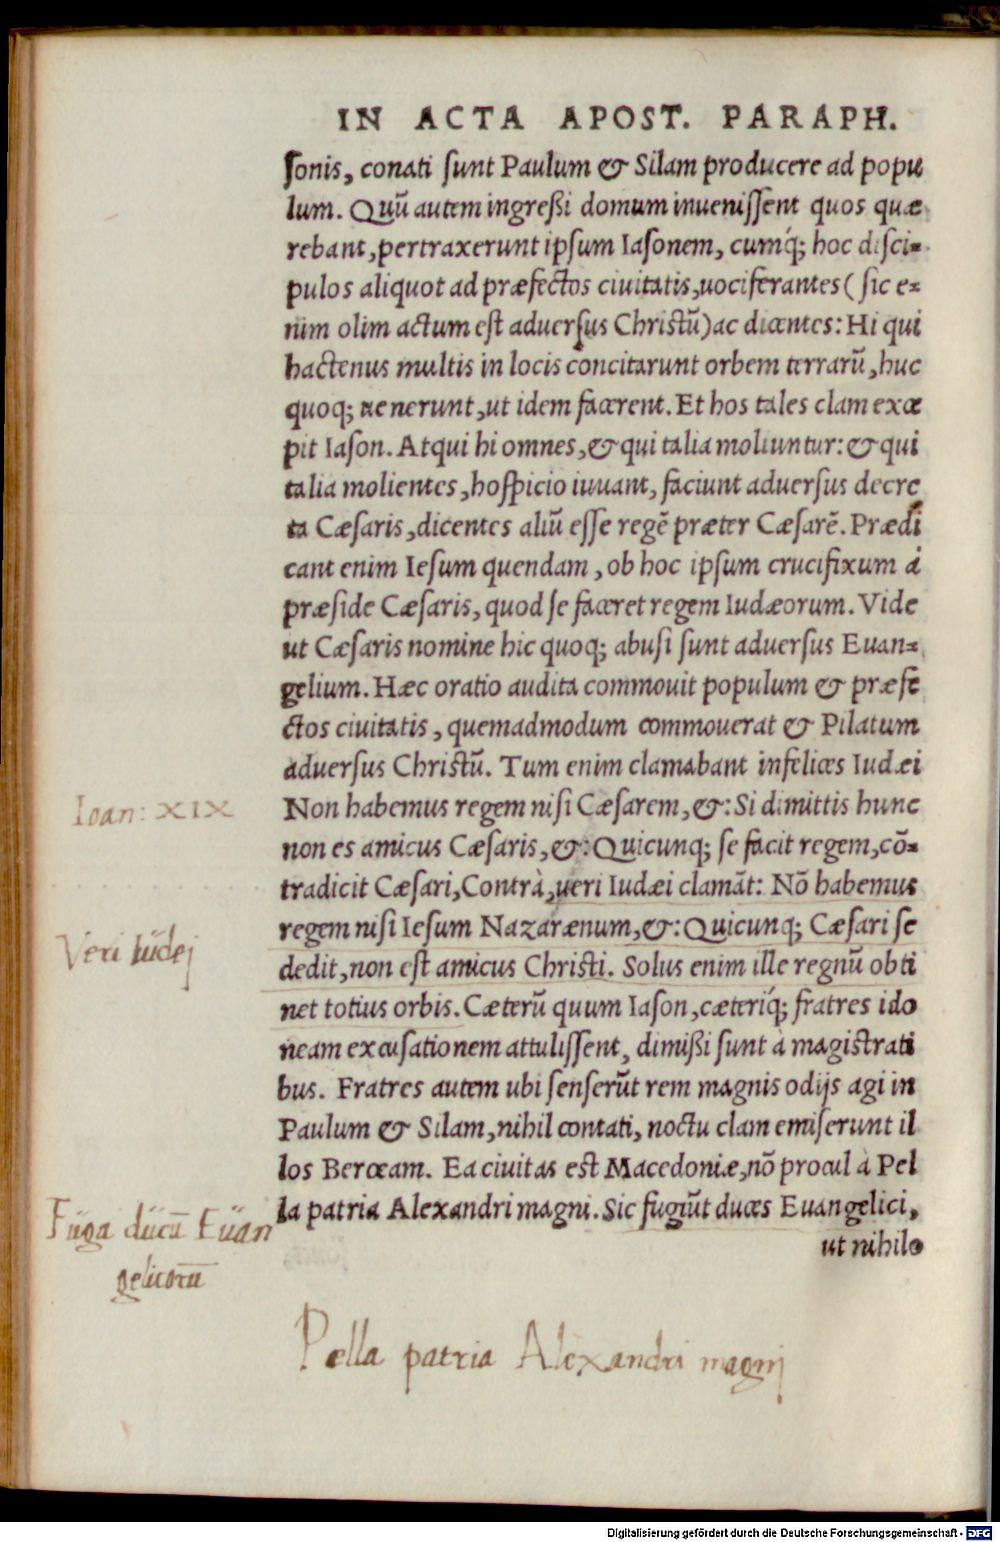 IN ACTA APOST. PARAPH.
sonis, conati sunt Paulum & Silam producere ad popu
lum. Quū autem ingreßi domum inuenissent quos quæ
rebant, pertraxerunt ipsum Iasonem, cumq́; hoc disci-
pulos aliquot ad præfectos ciuitatis, uociferantes ( sic e-
nim olim actum est aduersus Christū) ac dicentes: Hi qui
hactenus multis in locis concitarunt orbem terrarū, huc
quoq; uenerunt, ut idem facerent. Et hos tales clam exce
pit Iason. Atqui hi omnes, & qui talia moliuntur: & qui
talia molientes, hospicio iuuant, faciunt aduersus decre
ta Cæsaris, dicentes aliū esse regē præter Cæsarē. Prædi
cant enim Iesum quendam, ob hoc ipsum crucifixum á
præside Cæsaris, quod se faceret regem Iudæorum. Vide
ut Cæsaris nomine hic quoq; abusi sunt aduersus Euan-
gelium. Hæc oratio audita commouit populum & præfe
ctos ciuitatis, quemadmodum commouerat & Pilatum
aduersus Christū. Tum enim clamabant infelices Iudæi
Ioan: XIX
Non habemus regem nisi Cæsarem, &: Si dimittis hunc
non es amicus Cæsaris, &: Quicunq; se facit regem, cō-
tradicit Cæsari, Contrà, ueri Iudæi clamāt: Nō habemus
Veri Iudej
regem nisi Iesum Nazarænum, &: Quicunq; Cæsari se
dedit, non est amicus Christi. Solus enim ille regnū obti
net totius orbis. Cæterū quum Iason, cæteriq́; fratres ido
neam excusationem attulissent, dimißi sunt à magistrati
bus. Fratres autem ubi senserūt rem magnis odijs agi in
Paulum & Silam, nihil contati, noctu clam emiserunt il
los Berœam. Ea ciuitas est Macedoniæ, nō procul à Pel
la patria Alexandri magni. Sic fugiūt duces Euangelici,
Fuga ducū Euan
gelicorū
ut nihilo
Pella patria Alexandri magnj
Digitalisierung gefördert durch die Deutsche Forschungsgemeinschaft - DFG